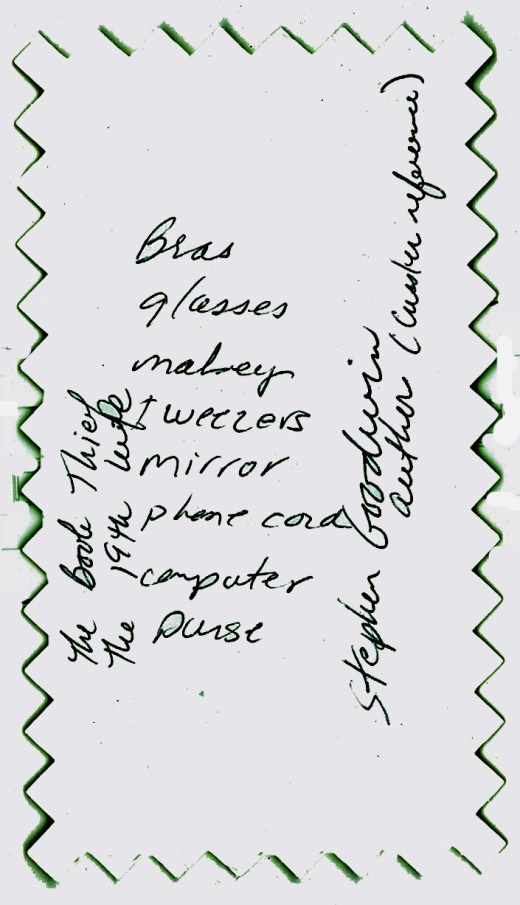 Bras
glasses
tweezers
mirror
phone cord
computer
purse
The Book Thief
The 19th Wife
Stephen Goodwin
author (Custer reference)